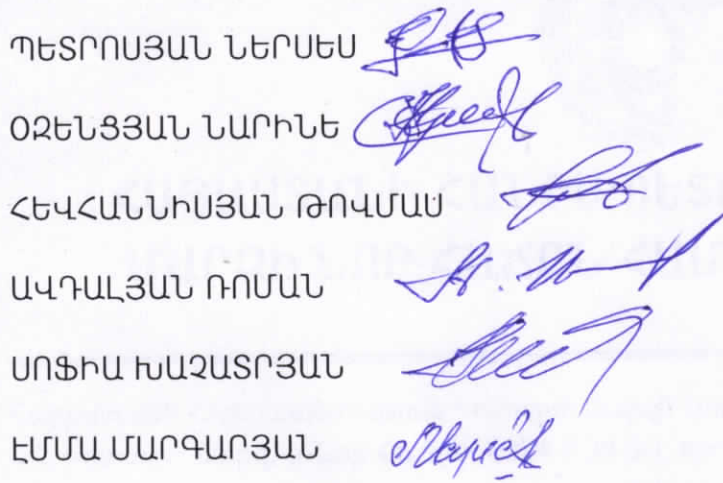 ՊԵՏՐՈՍՅԱՆ ՆԵՐՍԵՍ
ՕԶԵՆՑՅԱՆ ՆԱՐԻՆԵ
ՀԵՎՀԱՆՆԻՍՅԱՆ ԹՈՎՄԱՍ
ԱՎԴԱԼՅԱՆ ՌՈՄԱՆ
ՍՈՖԻԱ ԽԱՉԱՏՐՅԱՆ
ԷՄՄԱ ՄԱՐԳԱՐՅԱՆ